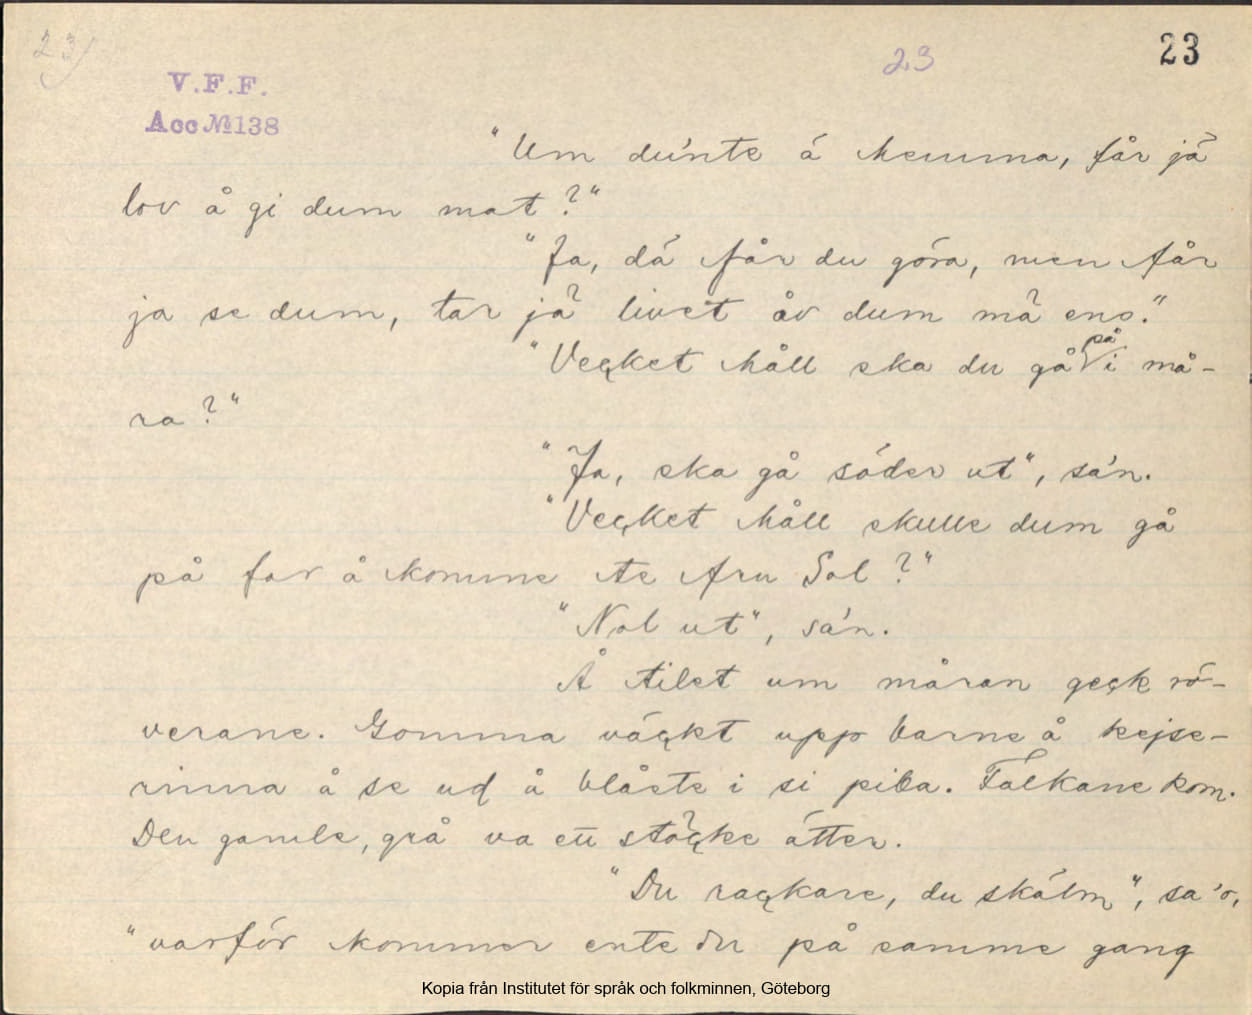 23)
23
23
V.F.F.
Acc № 138
"Um du'nte á hemma, får jä
lov å gi dum mat?"
"Ja, dá får du góra, men får
ja se dum, tar jä livet åv dum mä eno."
"Veçket håll ska du gå på i må-
ra?"
"Ja, ska gå sóder ut", sa'n.
"Veçket håll skulle dum gå
på for å komme te fru Sol?"
"Nol ut", sa'n.
Å tilet um måran geçk ró-
verane. Gomma váçkt upp barne å kejse-
rinna å se ud å blåste i si piba. Falkane kom.
Den gamle, grå va en stöçke átter.
"Du raçkare, du skálm", sa'o,
"varfór kommer ente du på samme gang
Kopia från Institutet för språk och folkminnen, Göteborg